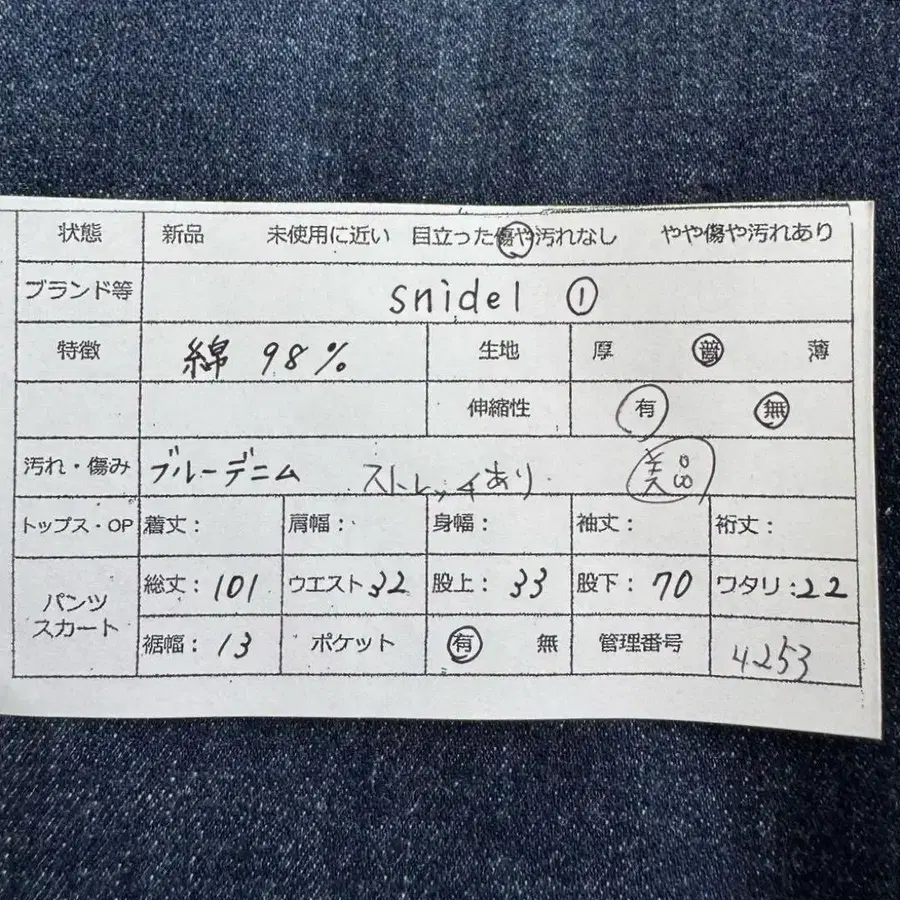 状態 新品 未使用に近い 目立った傷や汚れなし やや傷や汚れあり
ブランド等 snidel ①
特徴 綿 98% 生地 厚 普 薄
伸縮性 有 無
汚れ・傷み ブルーデニム ストレッチあり 美品
トップス・OP 着丈: 肩幅: 身幅: 袖丈: 裄丈:
パンツ スカート 総丈: 101 ウエスト 32 股上: 33 股下: 70 ワタリ: 22
裾幅: 13 ポケット 有 無 管理番号 4253